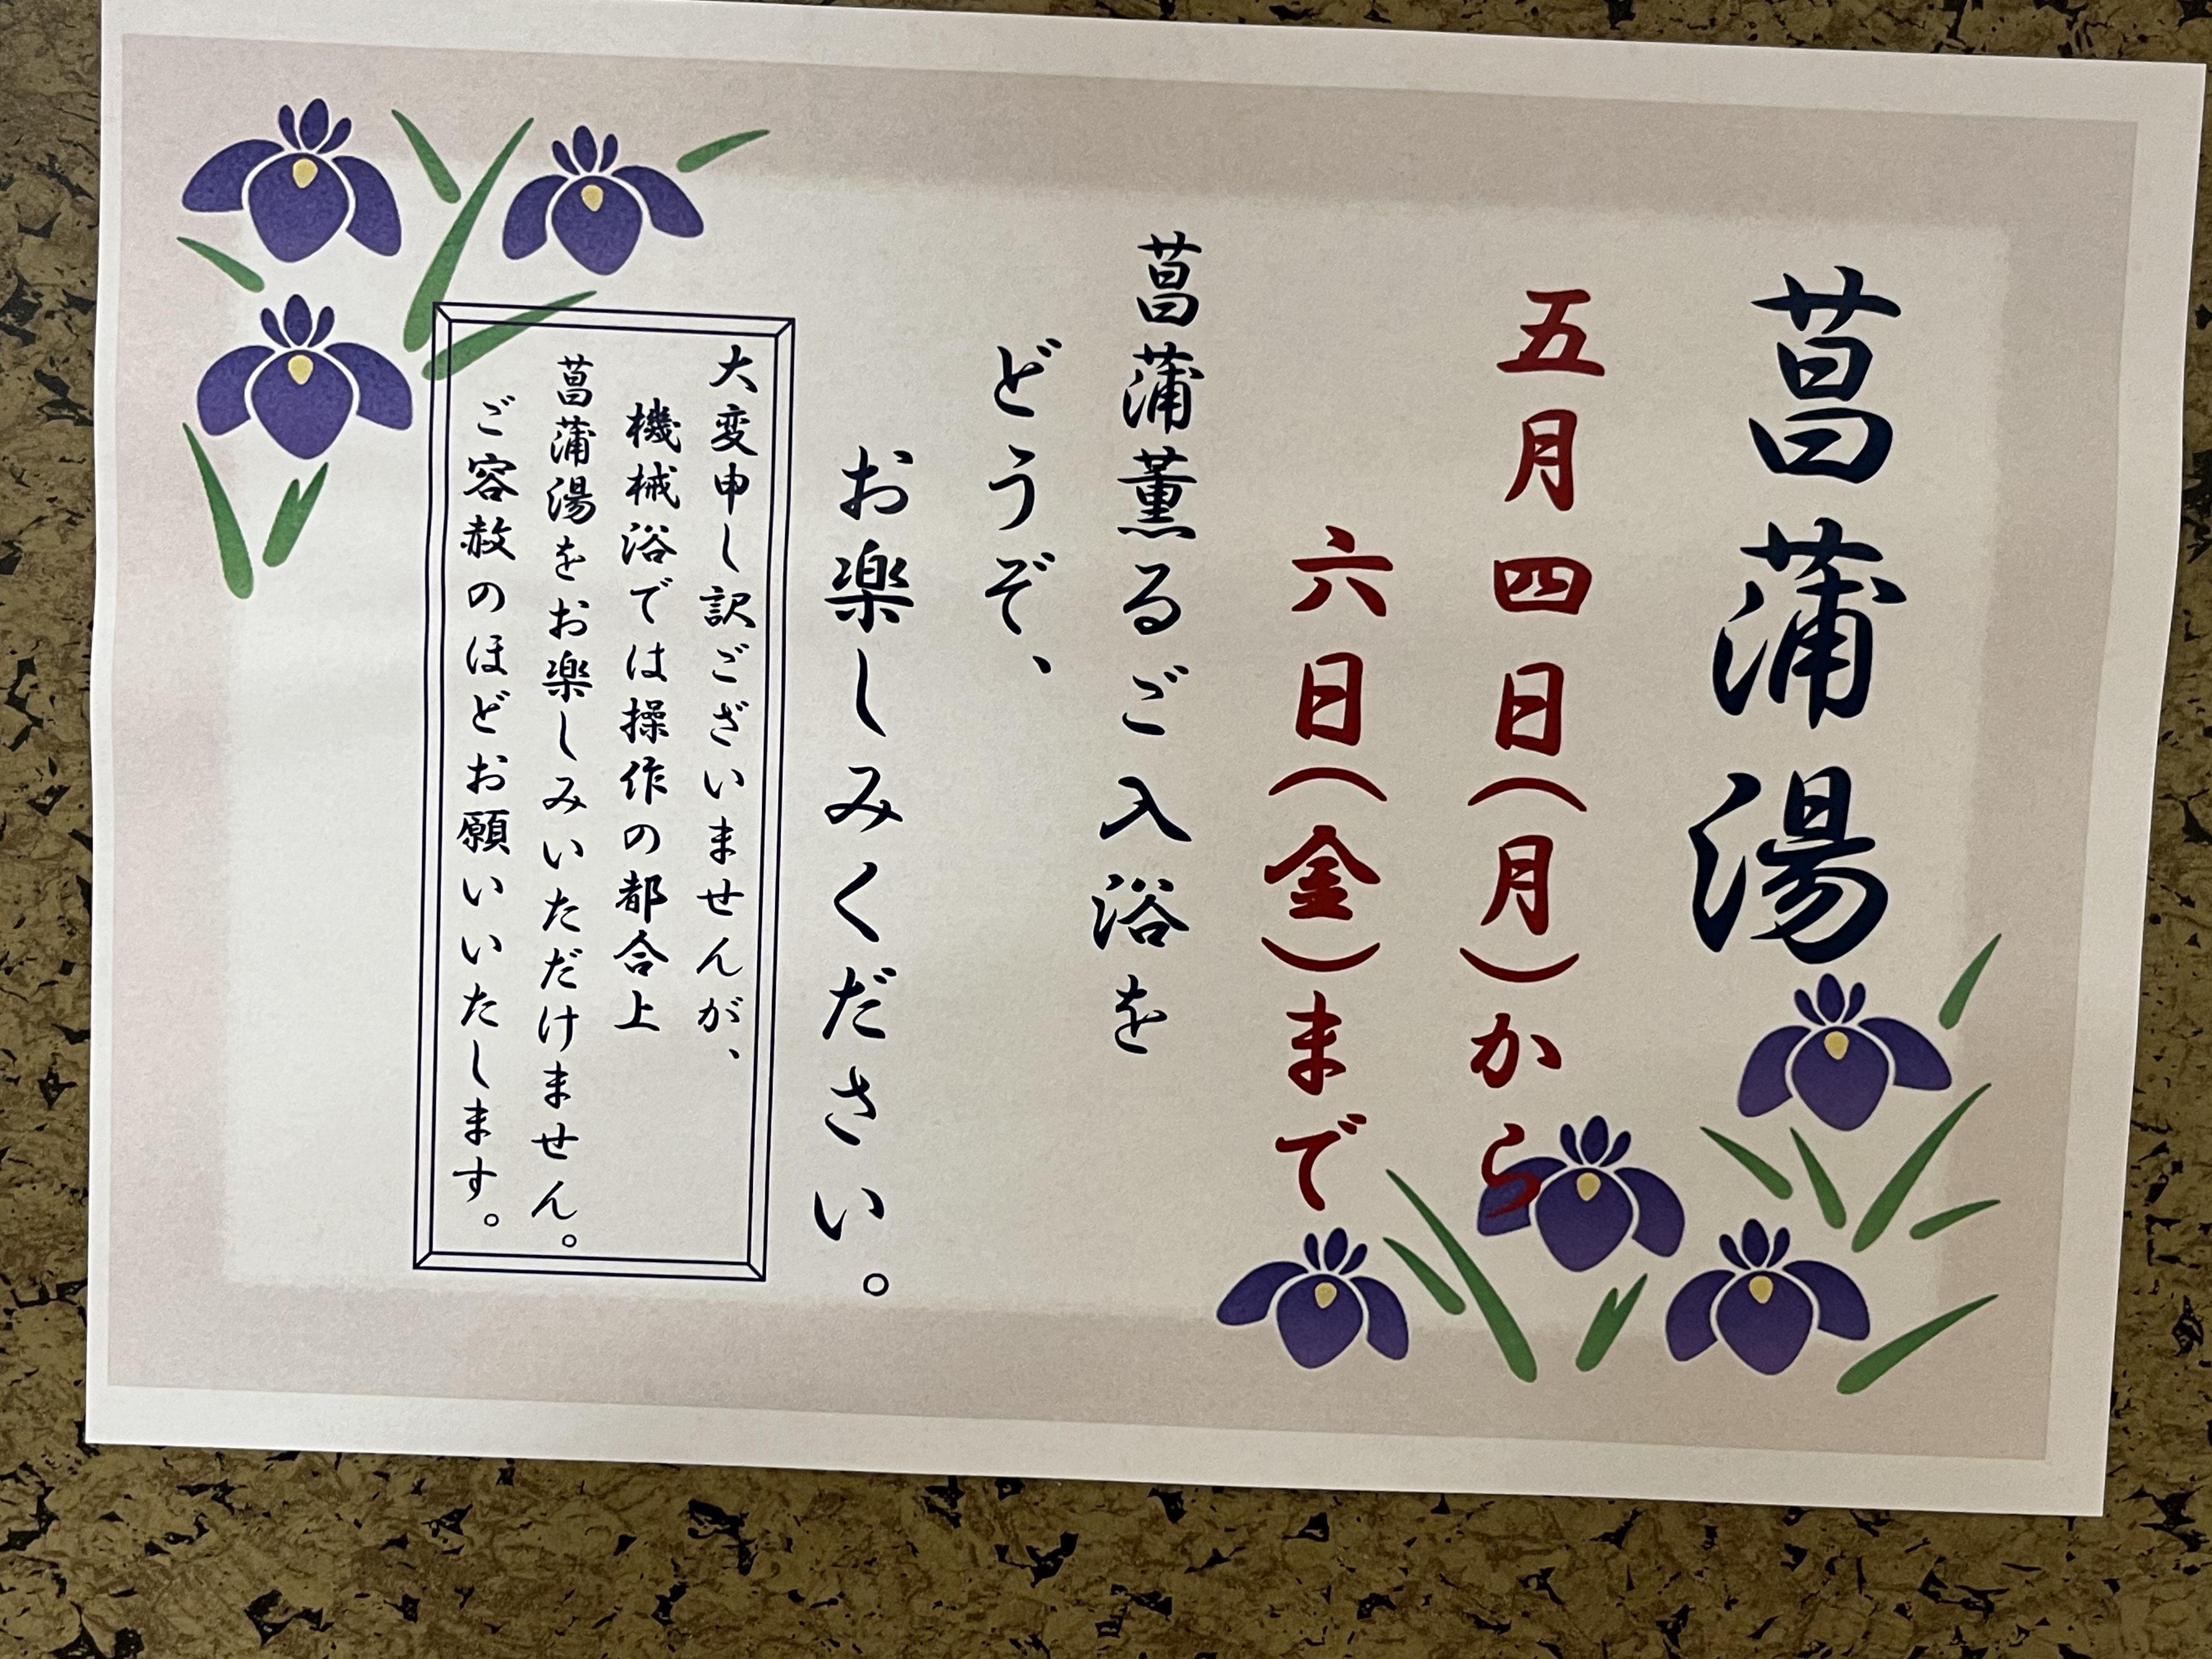 菖蒲湯
五月四日(月)から
六日(金)まで
菖蒲薫るご入浴を
どうぞ、
お楽しみください。
大変申し訳ございませんが、
機械浴では操作の都合上
菖蒲湯をお楽しみいただけません。
ご容赦のほどお願いいたします。